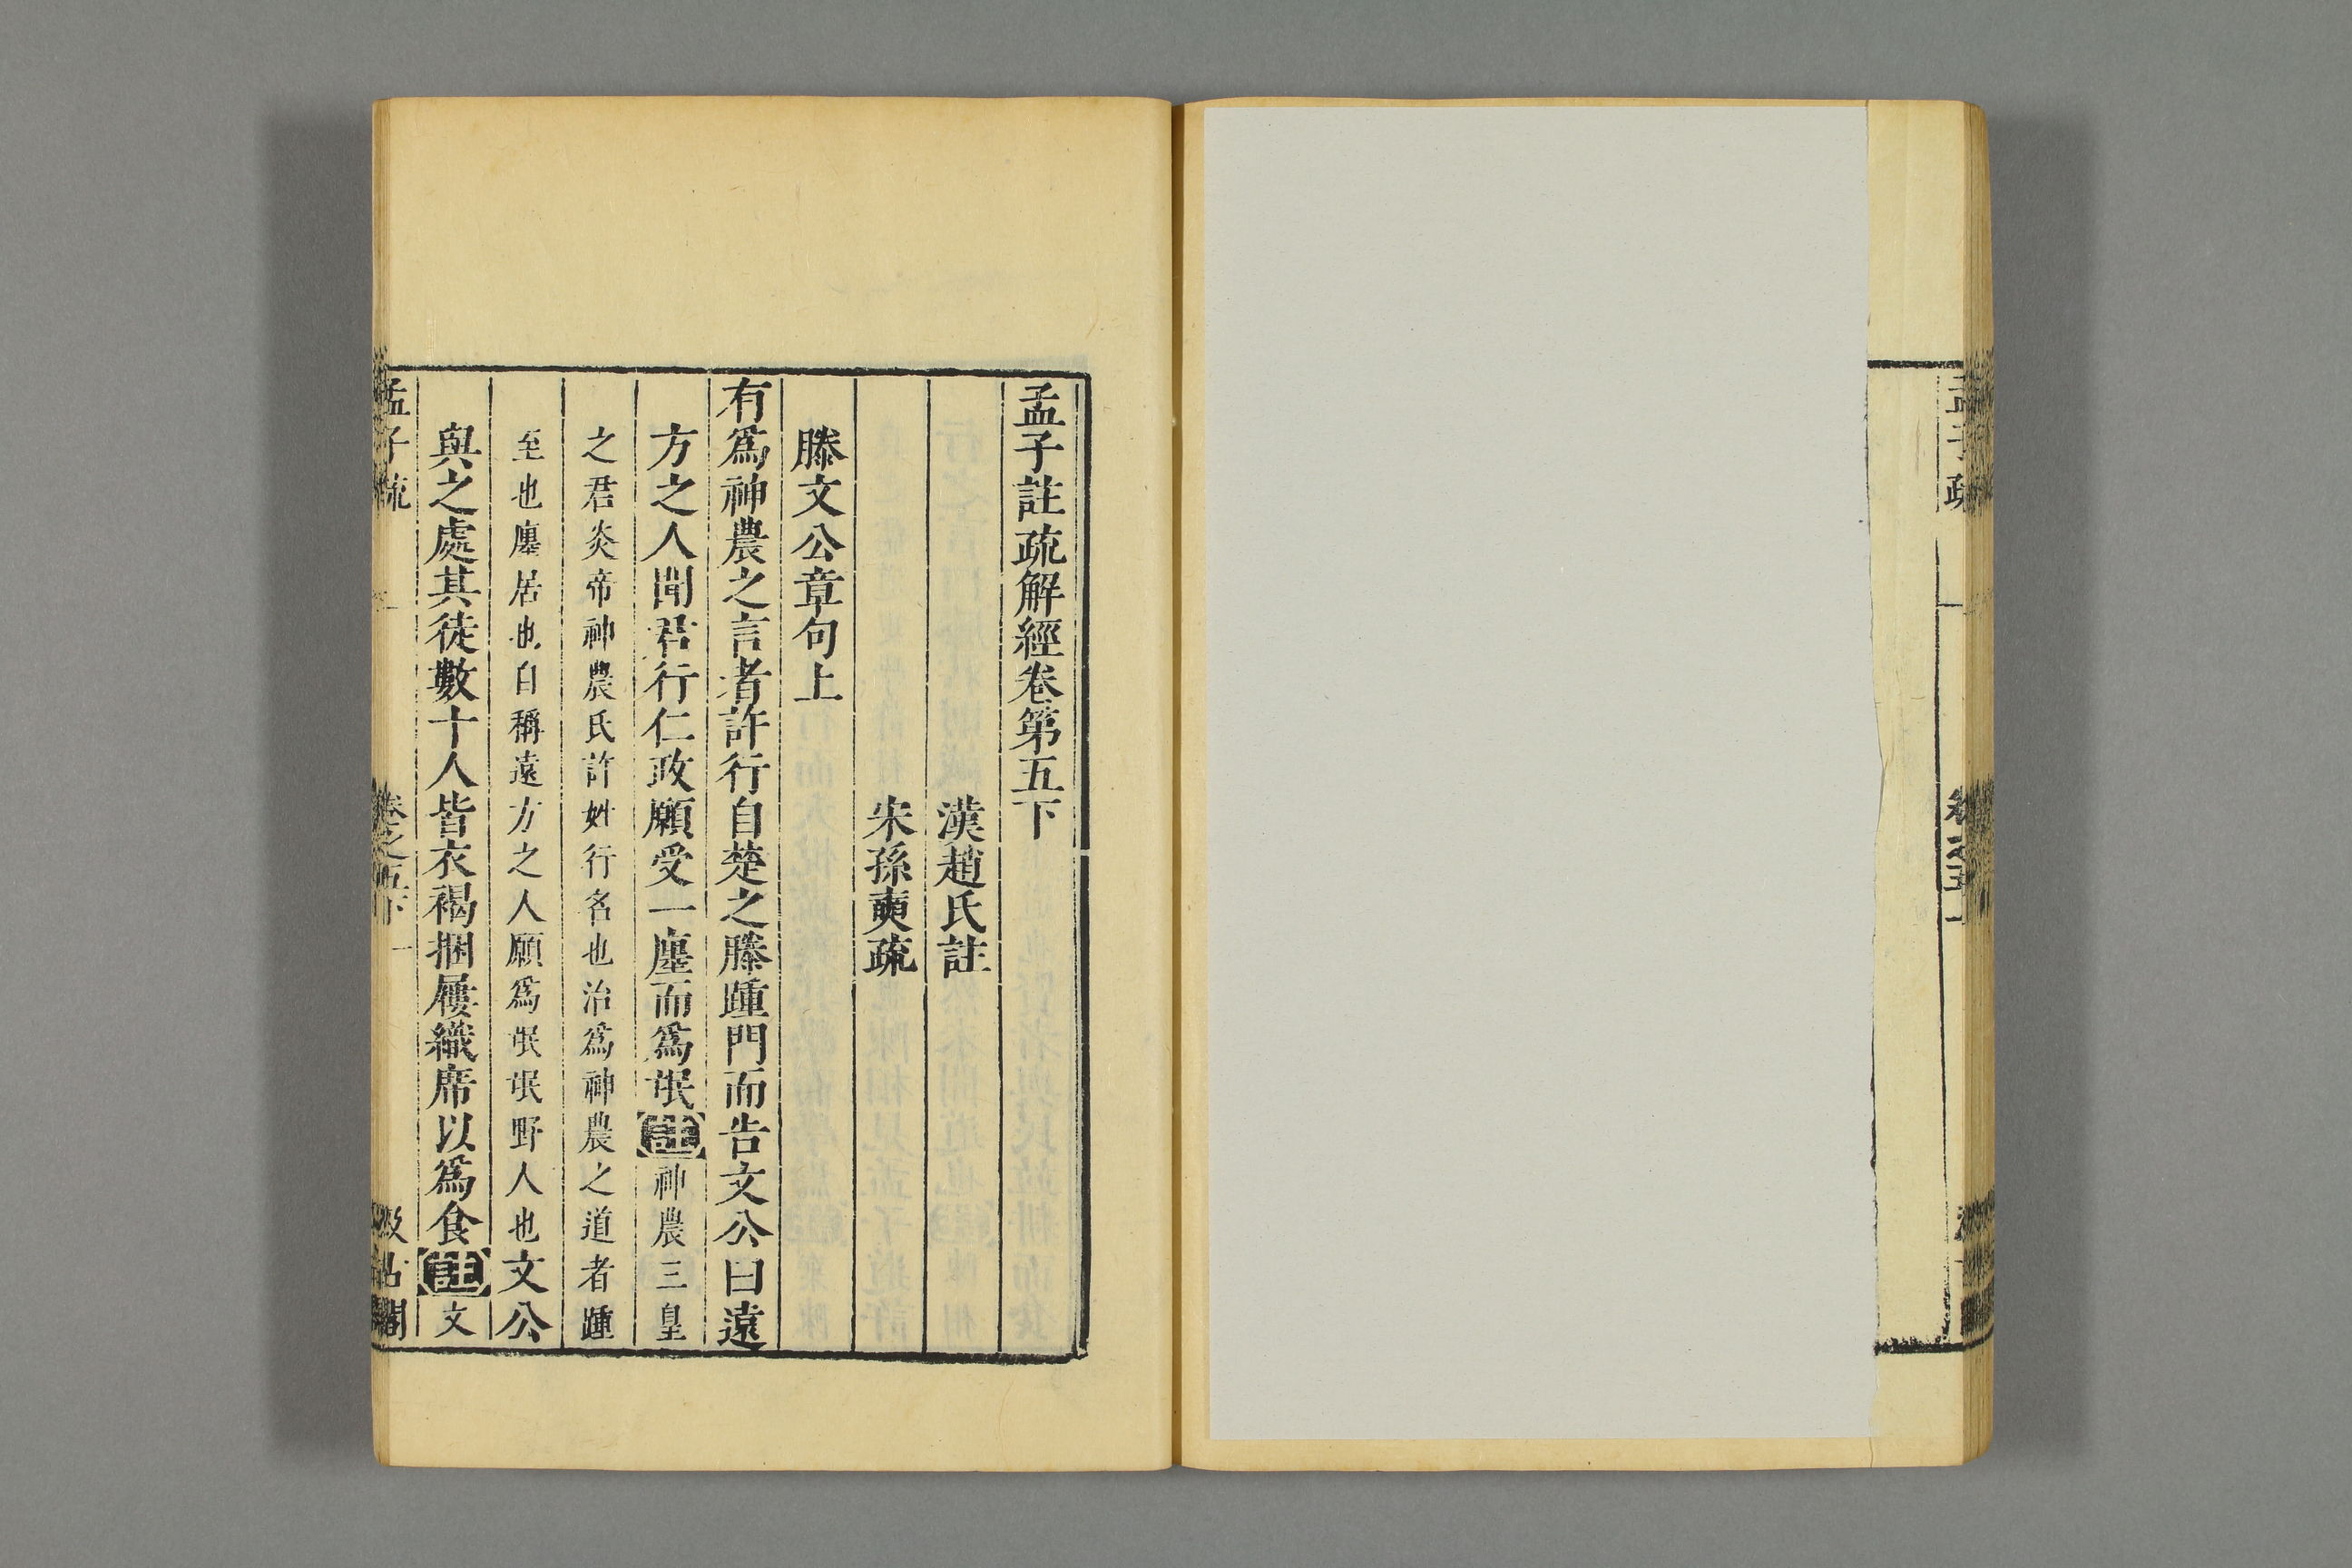 孟子疏
孟子註疏解經卷第五下
漢趙氏註
宋孫奭疏
滕文公章句上
有爲神農之言者許行自楚之滕踵門而告文公曰遠
方之人聞君行仁政願受一廛而爲氓註神農三皇
之君炎帝神農氏許姓行名也治爲神農之道者踵
至也廛居也自稱遠方之人願爲氓氓野人也文公
與之處其徒數十人皆衣褐捆屨織席以爲食註文
孟子疏 卷之五下 一 汲古閣